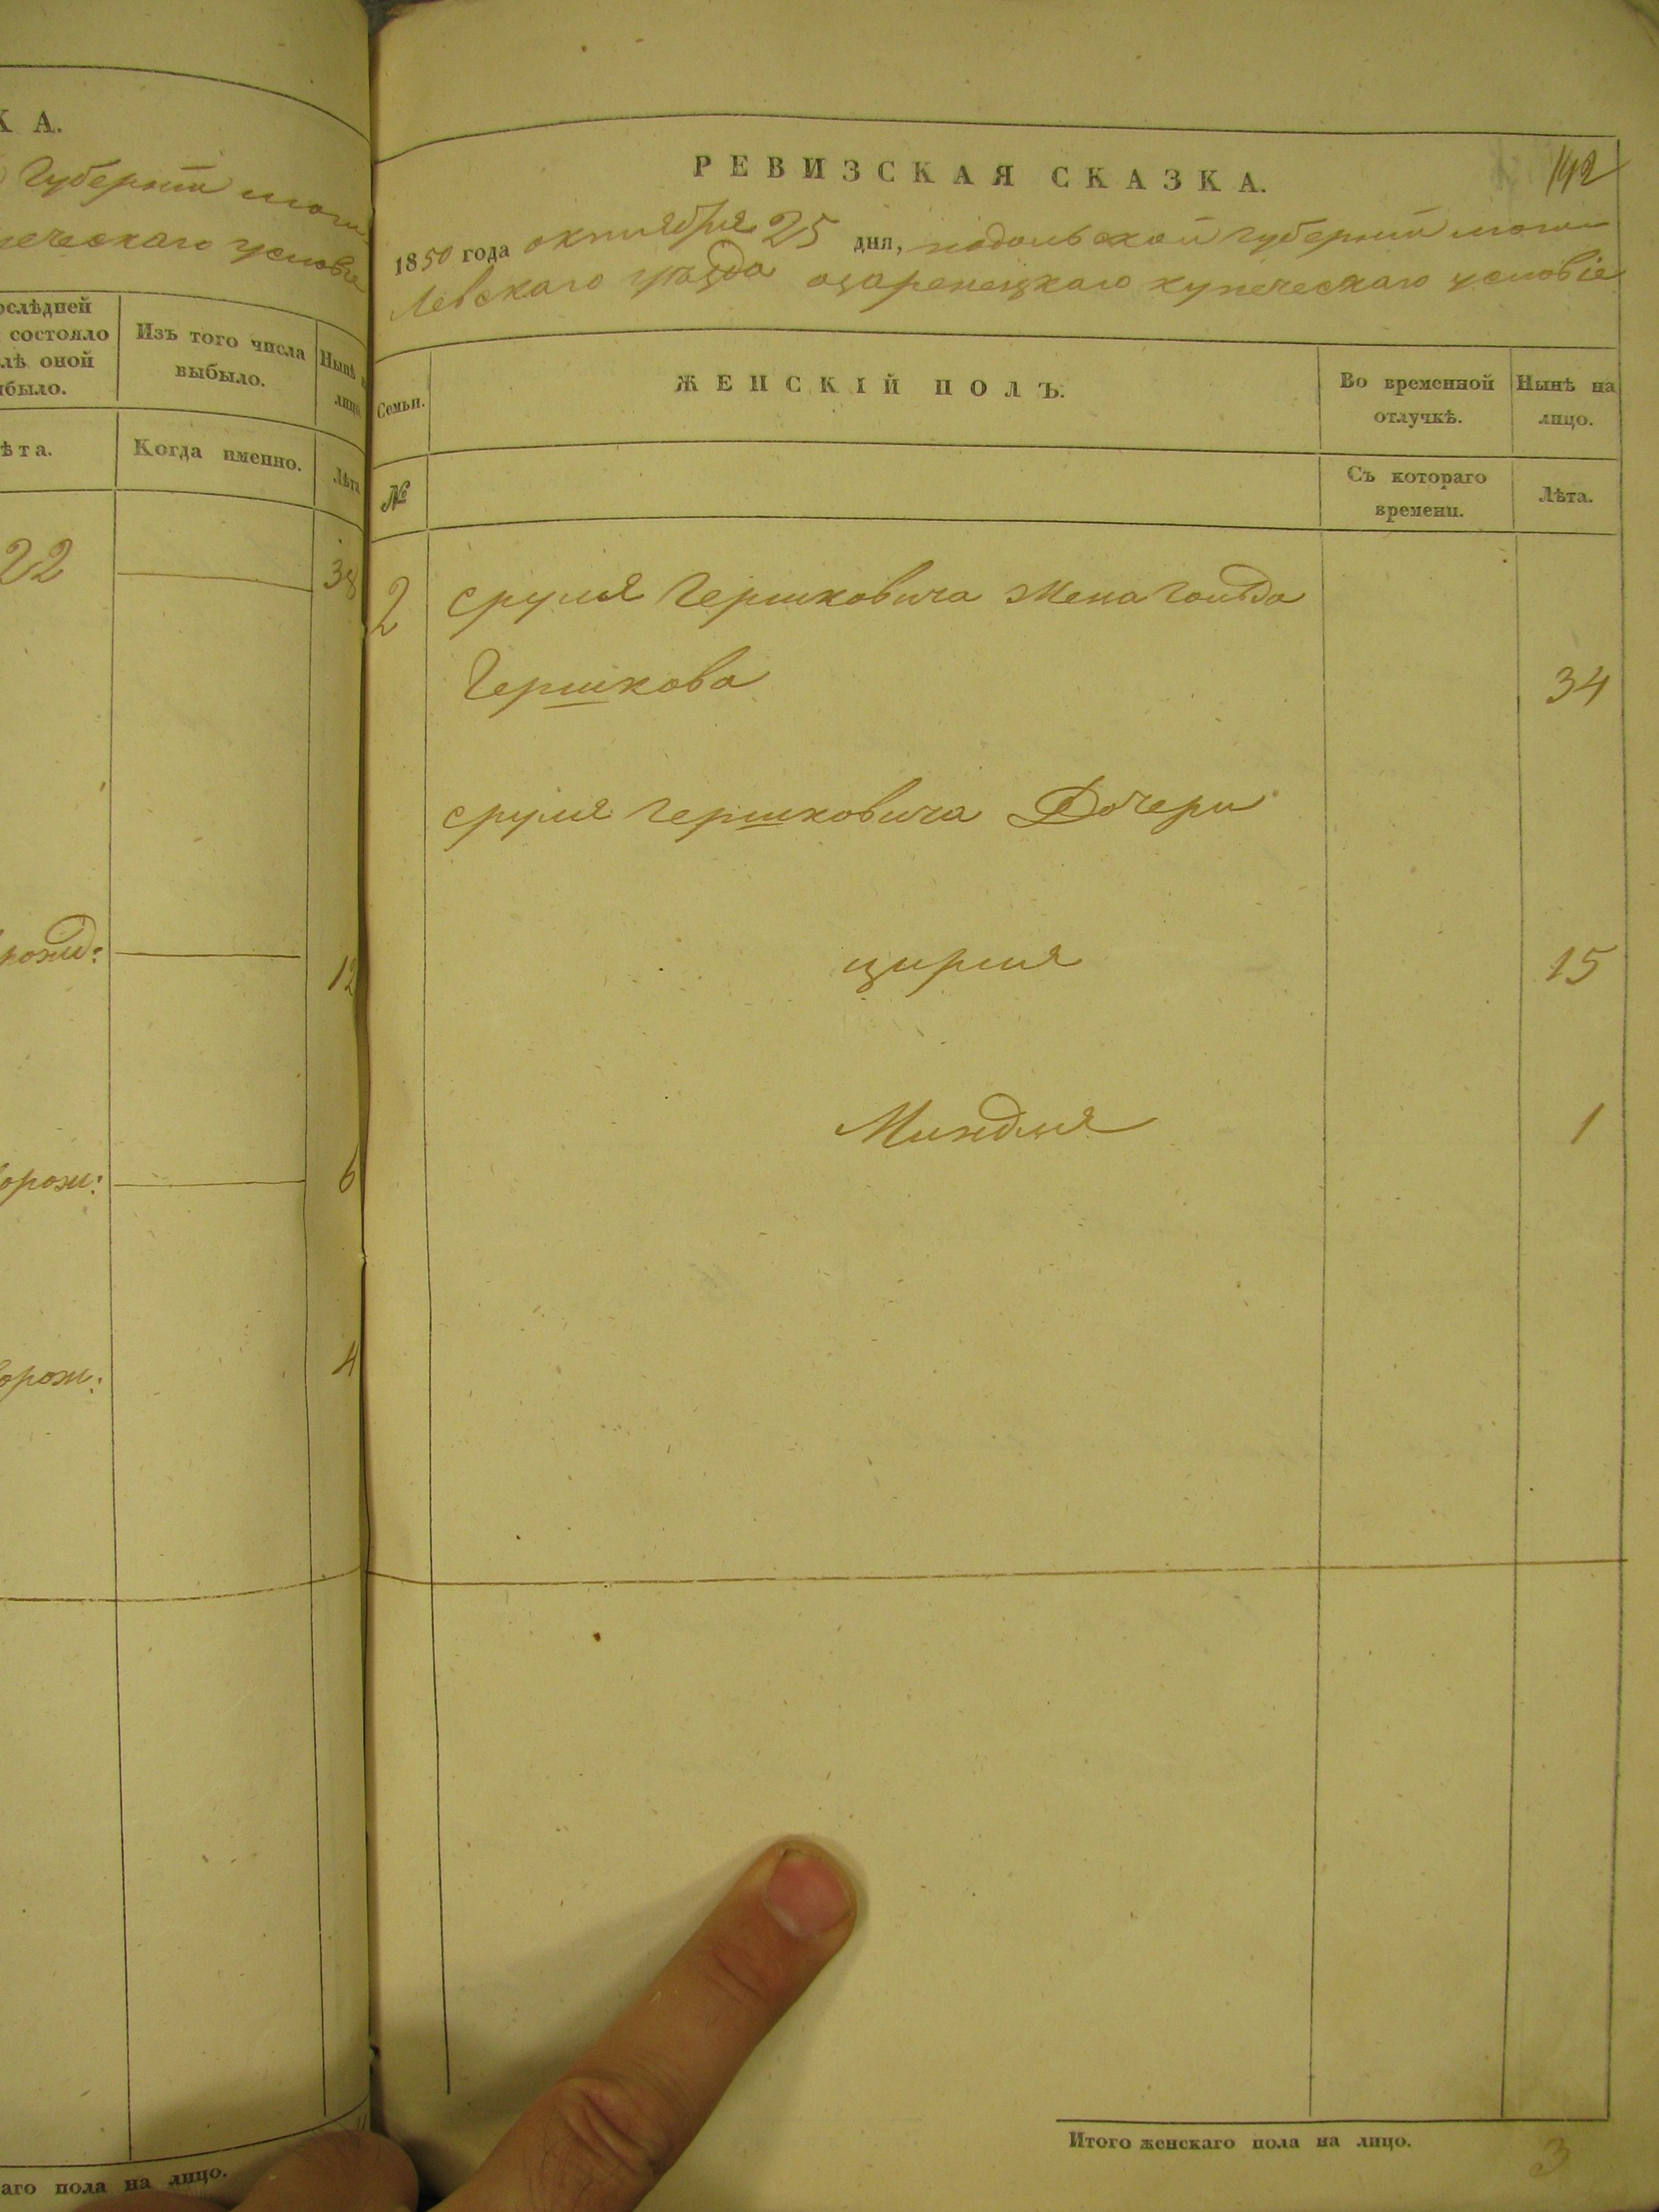 К А.
Губернiи моги
ческаго условiе
ослѣдней
состояло
лѣ оной
было.
Изъ того числа
выбыло.
Нынѣ
лицо
ѣта.
Когда именно.
Лѣта
22
38
12
орож:
6
орож:
4
аго пола на лицо.
РЕВИЗСКАЯ СКАЗКА.
142
1850 года октября 25 дня, подольской губернiи моги
левскаго уѣзда озаренецкаго купеческаго условiе
Семьи.
ЖЕНСКIЙ ПОЛЪ.
Во временной
отлучкѣ.
Нынѣ на
лицо.
№
Съ котораго
времени.
Лѣта.
2
сруля Гершковича жена гольда
Гершкова
34
сруля гершковича Дочери
цирля
15
Миндля
1
Итого женскаго пола на лицо.
3